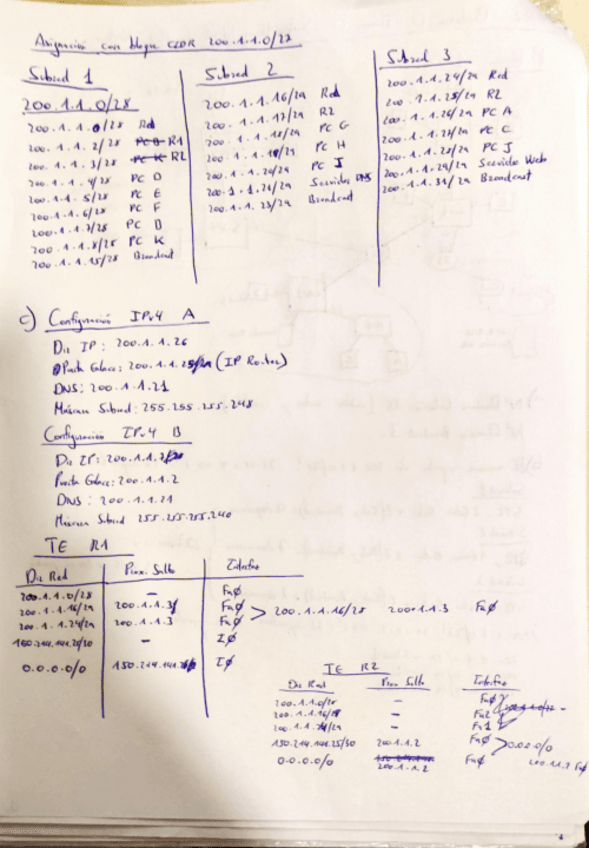 Asignación con bloque CIDR 200.1.1.0/27
Subred 1
200.1.1.0/28
200.1.1.0/28 Red
200.1.1.2/28 R1
200.1.1.3/28 R2
200.1.1.4/28 PC D
200.1.1.5/28 PC E
200.1.1.6/28 PC F
200.1.1.7/28 PC B
200.1.1.8/28 PC K
200.1.1.15/28 Broadcast
Subred 2
200.1.1.16/29 Red
200.1.1.17/29 R2
200.1.1.18/29 PC G
200.1.1.19/29 PC H
200.1.1.20/29 PC I
200.1.1.21/29 Servidor DNS
200.1.1.23/29 Broadcast
Subred 3
200.1.1.24/29 Red
200.1.1.25/29 R2
200.1.1.26/29 PC A
200.1.1.27/29 PC C
200.1.1.28/29 PC J
200.1.1.29/29 Servidor Web
200.1.1.31/29 Broadcast
c) Configuración IPv4 A
Dir IP: 200.1.1.26
Puerta Enlace: 200.1.1.25/29 (IP Router)
DNS: 200.1.1.21
Máscara Subred: 255.255.255.248
Configuración IPv4 B
Dir IP: 200.1.1.7
Puerta Enlace: 200.1.1.2
DNS: 200.1.1.21
Máscara Subred 255.255.255.240
TE R1
Dir Red Prox. Salto Interfaz
200.1.1.0/28 — Fa0
200.1.1.16/29 200.1.1.3 Fa0
200.1.1.24/29 200.1.1.3 Fa0
> 200.1.1.16/28 200.1.1.3 Fa0
/30 — I0
0.0.0.0/0 150.214.141. I0
TE R2
Dir Red Prox Salto Interfaz
200.1.1.0/28 — Fa0
200.1.1.16/ — Fa2
200.1.1.24/29 — Fa1
150.214.141.25/30 200.1.1.2 Fa0
0.0.0.0/0 200.1.1.2 Fa0
> 0.0.0.0/0
200.1.1.2 Fa0